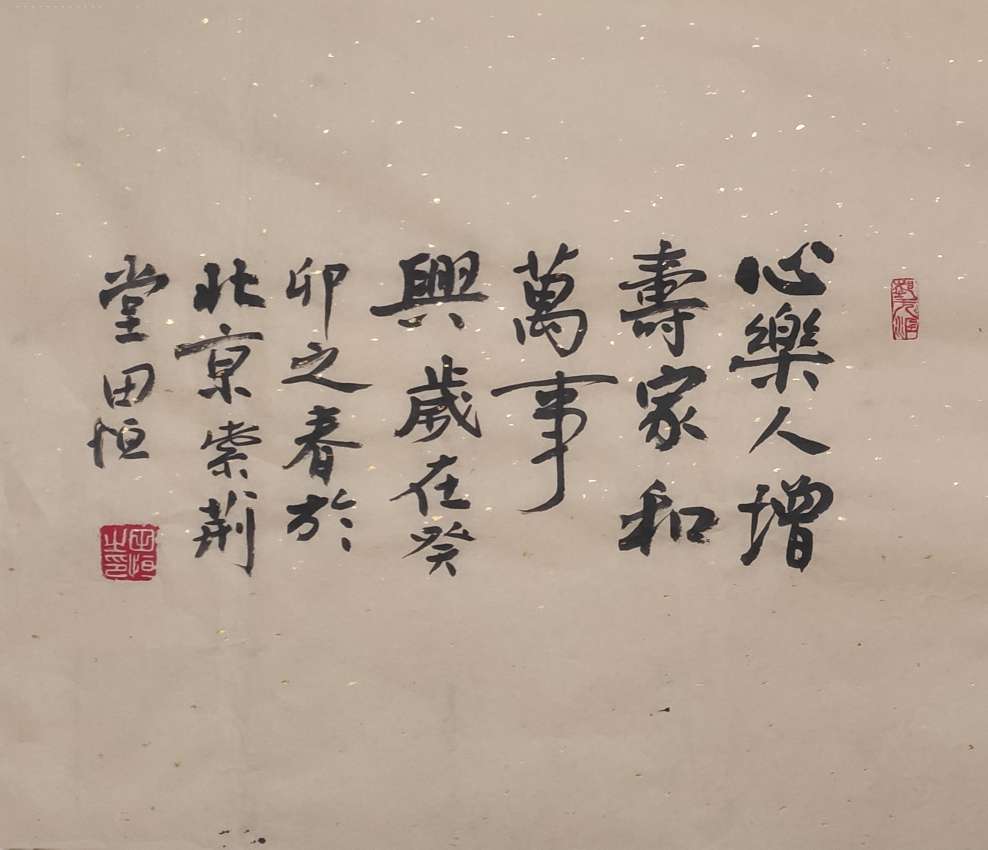 心樂人增
壽家和
萬事
興 歲在癸
卯之春於
北京紫荊
堂田恒
田恒之印